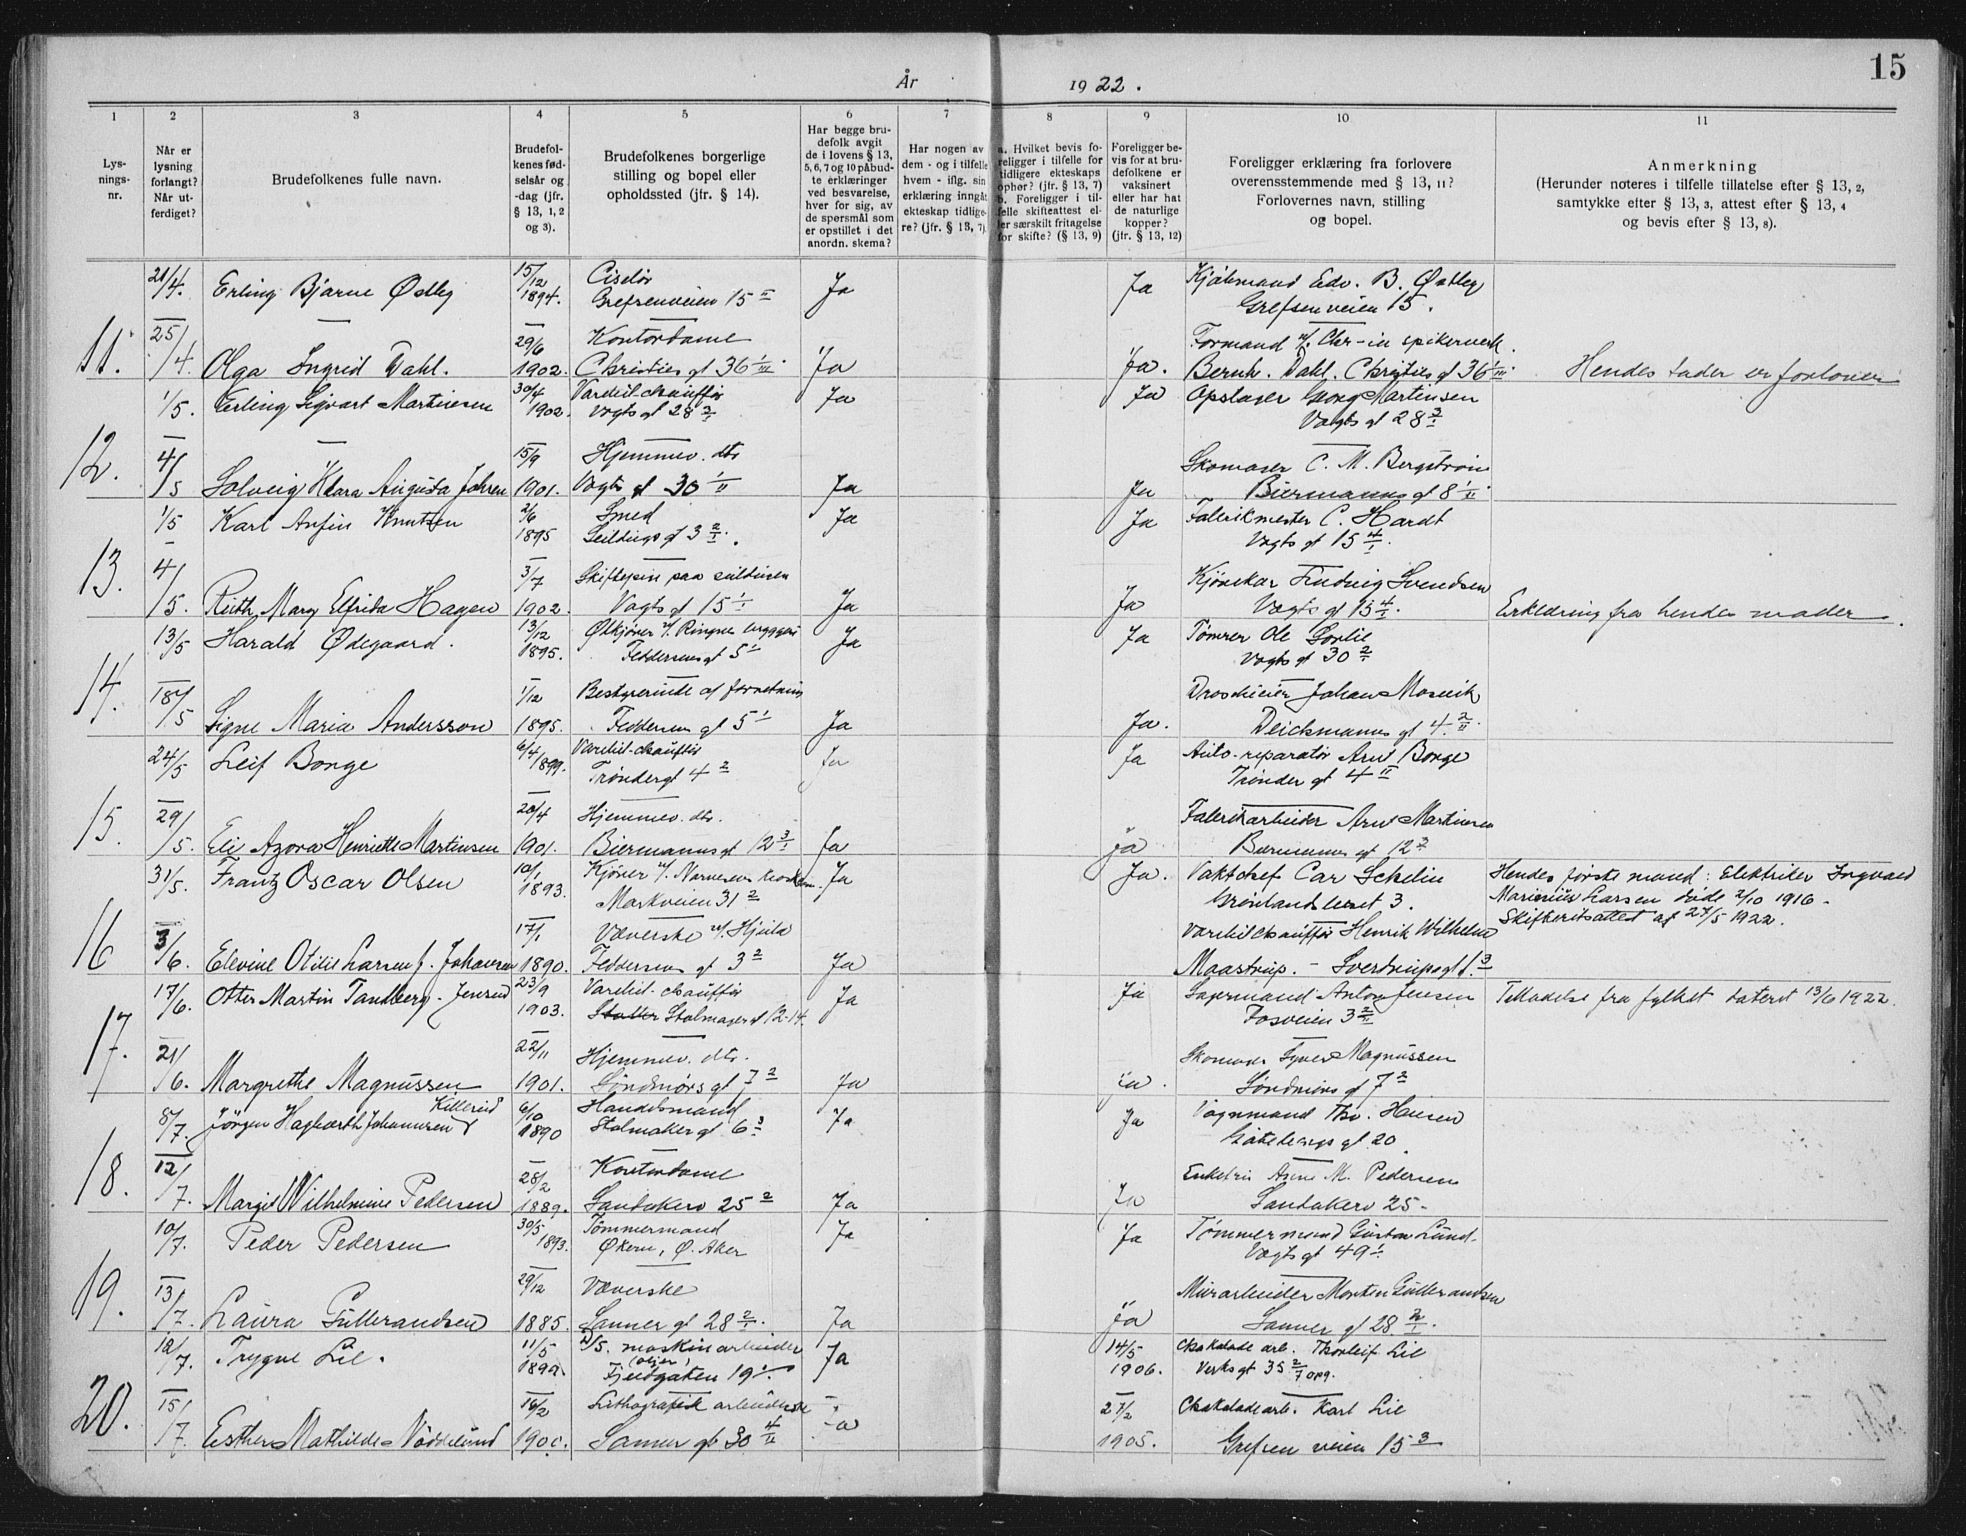 År 1922.
15
1 2 3 4 5 6 7 8 9 10 11
Lysningsnr.
Når er lysning forlangt? Når utferdiget?
Brudefolkenes fulle navn.
Brudefolkenes fødselsår og -dag (jfr. § 13, 1, 2 og 3).
Brudefolkenes borgerlige stilling og bopel eller opholdssted (jfr. § 14).
Har begge brudefolk avgit de i lovens § 13, 5, 6, 7 og 10 påbudte erklæringer ved besvarelse, hver for sig, av de spersmål som er opstillet i det anordn. skema?
Har nogen av dem - og i tilfelle hvem - iflg. sin erklæring inngåt ekteskap tidligere? (jfr. § 13, 7).
a. Hvilket bevis foreligger i tilfelle for tidligere ekteskaps ophør? (jfr. § 13, 7) b. Foreligger i tilfelle skifteattest eller særskilt fritagelse for skifte? (§ 13, 9)
Foreligger bevis for at brudefolkene er vaksinert eller har hat de naturlige kopper? (jfr. § 13, 12)
Foreligger erklæring fra forlovere overensstemmende med § 13, 11? Forlovernes navn, stilling og bopel.
Anmerkning (Herunder noteres i tilfelle tillatelse efter § 13, 2, samtykke efter § 13, 3, attest efter § 13, 4 og bevis efter § 13, 8).
21/4. Erling Bjarne Østby 15/12 1894. Ciselør Grefsenveien 15 II Ja Ja Edv. B. Østby Grefsenveien 15.
11. 25/4 Olga Ingrid Dahl. 29/6 1902. Kontordame Christies gt 36 1/III Ja Ja. Formand v/ Chr-ia spikerverk. Bernh. Dahl. Christies gt 36 1/III. Hendes fader er forlover
1/5. Erling Sigvart Martinsen 30/4 1902. Varebil-chauffør Vogts gt 28 Ja Ja Georg Martensen Vogts gt 28
12. 4/5 Solveig Klara Augusta Jahren 15/9 1901. Hjemmev. dtr Vogts gt 30 1/II Ja Ja Skomager C. M. Bergstrøm Biermanns gt 8 1/II.
1/5 Karl Anfin Knutsen 2/6 1895 Smed Seildugs gt 3 2/I. Ja Ja Fabrikmester C. Hardt Vogts gt 15 4/I.
13. 4/5. Ruth Mary Elfrida Hagen 3/7 1902. Vogts gt 15 1/I Ja Ja Svendsen Vogts gt 15 4/I. Erklæring fra hendes moder.
13/5 Harald Ødegaard. 13/12 1895. Ølkjører v/ Ringnes bryggeri Feddersens gt 5 I Ja Ja Tømrer Ole Vogts gt 30
14. 18/5 Signe Maria Andersson 1/12 1895. Bestyrerinde af forretning Feddersens gt 5 I Ja Ja. Johan Deichmanns gt 4. 2/II.
24/5 Leif Bonge 6/4 1899. Varebil-chauffør Trøndergt 4 Ja Ja Auto-reparatør Arnt Bonge Trønder gt 4 II
15. 29/5. Eli Azora Henriette Martinsen 20/4 1901. Hjemmev. dtr. Biermanns gt 12 3/I Ja Ja Fabrikarbeider Arnt Martinsen Biermanns gt 12
31/5. Frantz Oscar Olsen 10/1 1893. Kjører v/ Narvesens kiosker. Markveien 31 Ja Ja. Vaktchef Car Schelin Grønlandsleret 3. Hendes første mand: Elektriker Ingvald Marinius Larsen døde 2/10 1916 - Skifteritsattest af 27/5 1922.
16 3/6. Elevine Otilie Larsen f. Johansen 17/1 1890. Væverske v/ Hjula Feddersens gt 3 Ja Varebilchauffør Henrik Wilhelm Maastrup. - Sverdrupsgt 1.
17. 17/6. Otter Martin Tandberg-Jensrud 23/9 1903. Varebil-chauffør Stolmagergt 12-14. Ja Ja Lagermand Anton Jensen Fosveien 3 2/II Tilladelse fra fylket dateret 13/6 1922.
21/6. Margrethe Magnussen 22/11 1901. Hjemmev. dtr. Søndmørs gt 7 Ja Ja. Skomager Magnussen Søndmørs gt 7
8/7. Jörgen Hagbarth Johannesen Killerud 6/10 1890 Handelsmand Stolmaker gt 6 Ja Ja Vognmand Thv. Hansen Gøteborgs gt 20
18. 12/7. Margit Wilhelmine Pedersen 28/2 1889. Kontordame Sandakerv 25 Ja Ja Enkefru M. Pedersen Sandakerv 25-
10/7. Peder Pedersen 30/5 1893. Tømmermand Økern, Ø. Aker Ja Ja Tømmermand Gustav Lund. Vogts gt 49 1/I
19. 13/7. Laura Gulbrandsen 29/12 1885. Væverske Sanner gt 28 2/I. Ja Ja Murarbeider Morten Gulbrandsen Sanner gt 28 2/I.
12/7. Trygve Lie. 11/5 maskinarbeider Ja 14/5 1906. Chokolade arb. Thorleif Lie Verksgt 35
20. 15/7. Esther Mathilde 16/2 1900. Lithografisk arbeiderske Sanner gt 30 4/II 27/2 1905. Chokoladearb. Karl Lie Grefsen veien 15